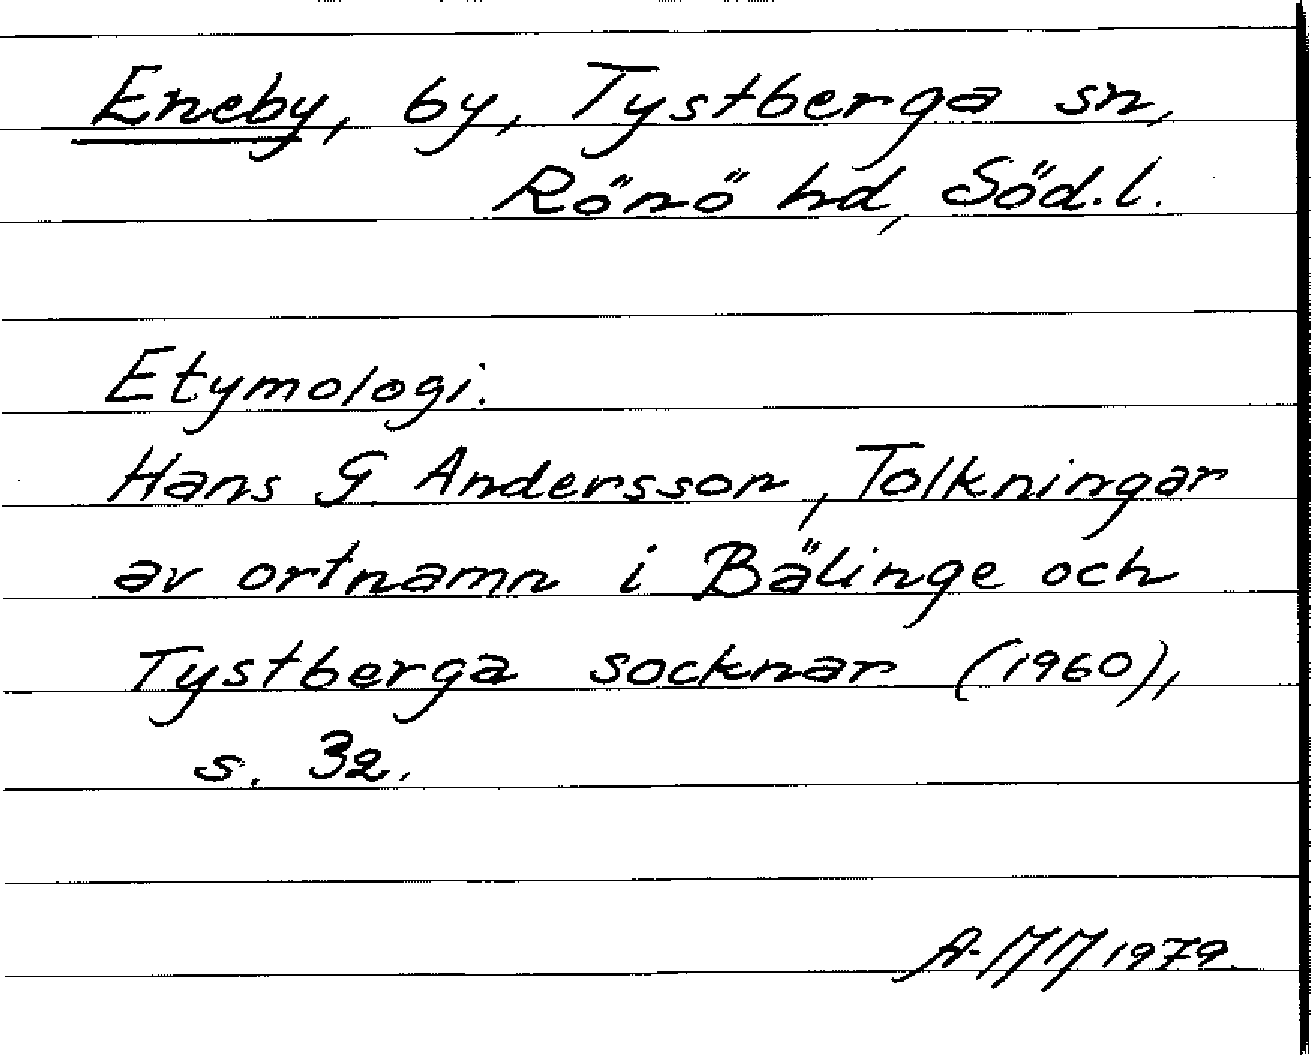 Eneby, by, Tystberga sn,
Rönö hd, Söd.l.
Etymologi.
Hans G. Andersson, Tolkningar
av ortnamn i Bälinge och
Tystberga socknar (1960),
s. 32.
A-MM 1979.